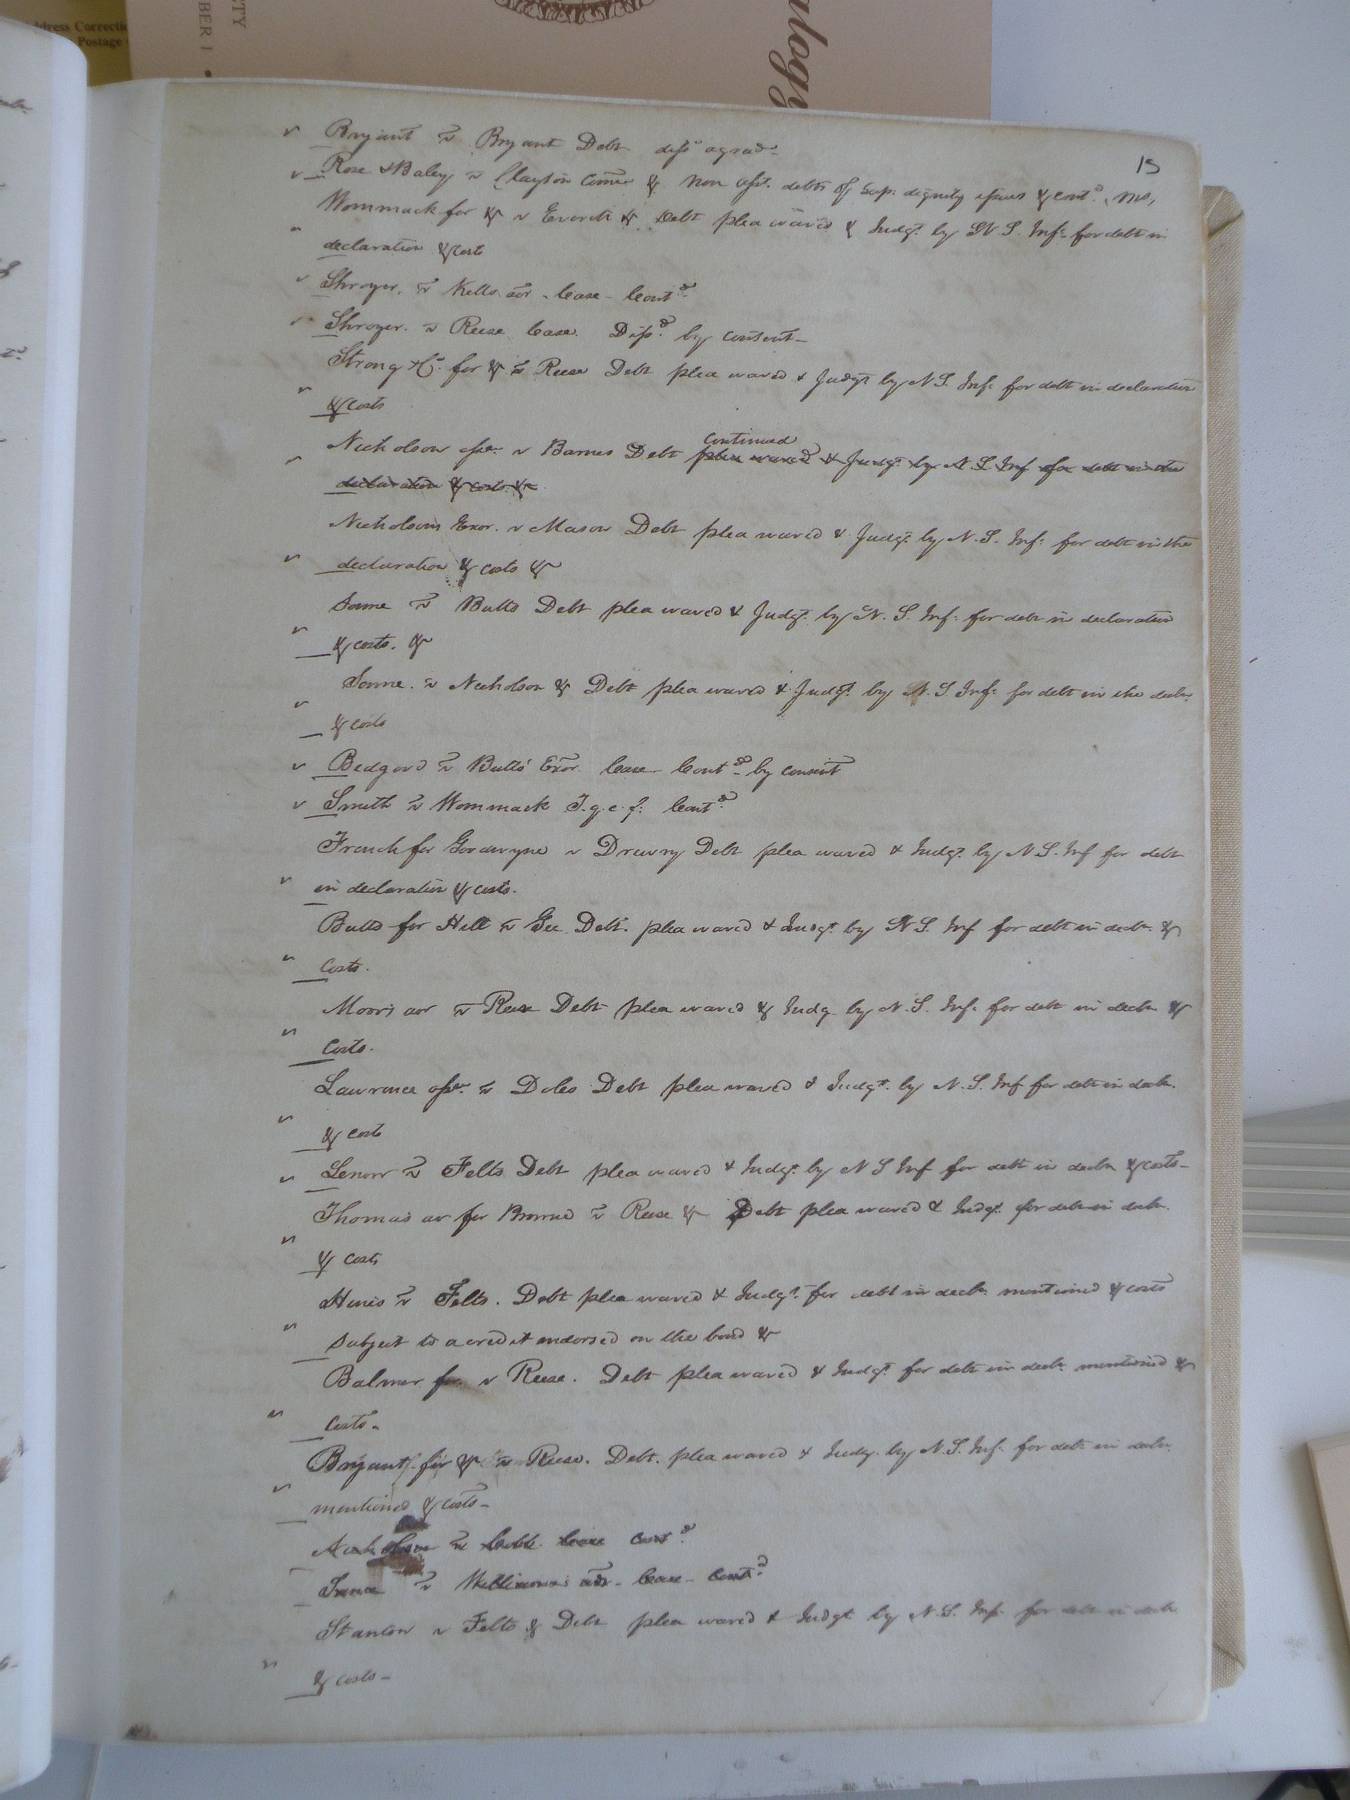 Address Correction
Postage
BER 1 •
15
Bryant vs Bryant Debt diss<sup>d</sup> agreed
Rose & Baley vs Clayton Debts of sup. dignity issues & cont<sup>d</sup>
Wommack for &c v Everett &c Debt plea waved & Judgt. by N S. Inf. for debt in
declaration & costs
Shroyer vs Kello adr. Case Cont<sup>d</sup>
Shroyer vs Reese Case Diss<sup>d</sup> by consent
Strong & Co. for &c vs Reese Debt plea waved & Judgt by N S. Inf. for debt in declaration
& costs
continued
Nicholson asse. v Barnes Debt plea waved & Judgt. by N S Inf for debt in the
declaration & costs &c
Nicholson's Exor. v Mason Debt plea waved & Judgt by N. S. Inf. for debt in the
declaration & costs &c
Same vs Butts Debt plea waved & Judgt. by N. S. Inf. for debt in declaration
& costs. &c
Same vs Nicholson & Debt plea waved & Judgt. by N. S. Inf. for debt in the decln.
& costs
Bedgood vs Butts' Exor. Case Cont<sup>d</sup> by consent
Smith vs Wommack Cont<sup>d</sup>
French for Goodwyne v Drewry Debt plea waved & Judgt. by N S. Inf for debt
in declaration & costs.
Butts for Hill vs Gee Debt. plea waved & Judgt. by N S. Inf for debt in decln. &
costs.
Moor's adr vs Reese Debt plea waved & Judg by N. S. Inf. for debt in decln &
costs.
Lawrence asse. vs Doles Debt plea waved & Judgt. by N. S. Inf for debt in decln.
& costs
Lenow vs Felts Debt plea waved & Judgt. by N S Inf for debt in decln & costs
Thomas adr for Browne vs Reese & Debt plea waved & Judgt. for debt in decln.
& costs
Hines vs Felts. Debt plea waved & Judgt. for debt in decln. mentioned & costs
subject to a credit endorsed on the bond &c
Balmer for v Reese. Debt plea waved & Judgt. for debt in decln mentioned &
costs
Bryant for &c vs Reese. Debt. plea waved & Judg. by N. S. Inf. for debt in decln.
mentioned & costs
Nicholson vs Case Cont<sup>d</sup>
Same vs Williamson's adr. Case Cont<sup>d</sup>
Stanton v Felts & Debt plea waved & Judgt by N. S. Inf. for debt in decln
& costs